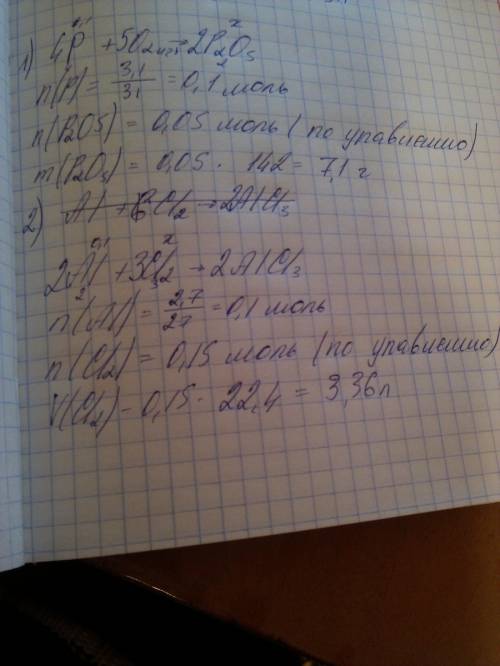 0,1 x
1) 4P + 5O2 изб → 2P2O5
4 2
n(P) = 3,1/31 = 0,1 моль
n(P2O5) = 0,05 моль (по уравнению)
m(P2O5) = 0,05 · 142 = 7,1 г
2) Al + 3Cl2 → 2AlCl3
0,1 x
2Al + 3Cl2 → 2AlCl3
2 3
n(Al) = 2,7/27 = 0,1 моль
n(Cl2) = 0,15 моль (по уравнению)
V(Cl2) - 0,15 · 22,4 = 3,36 л